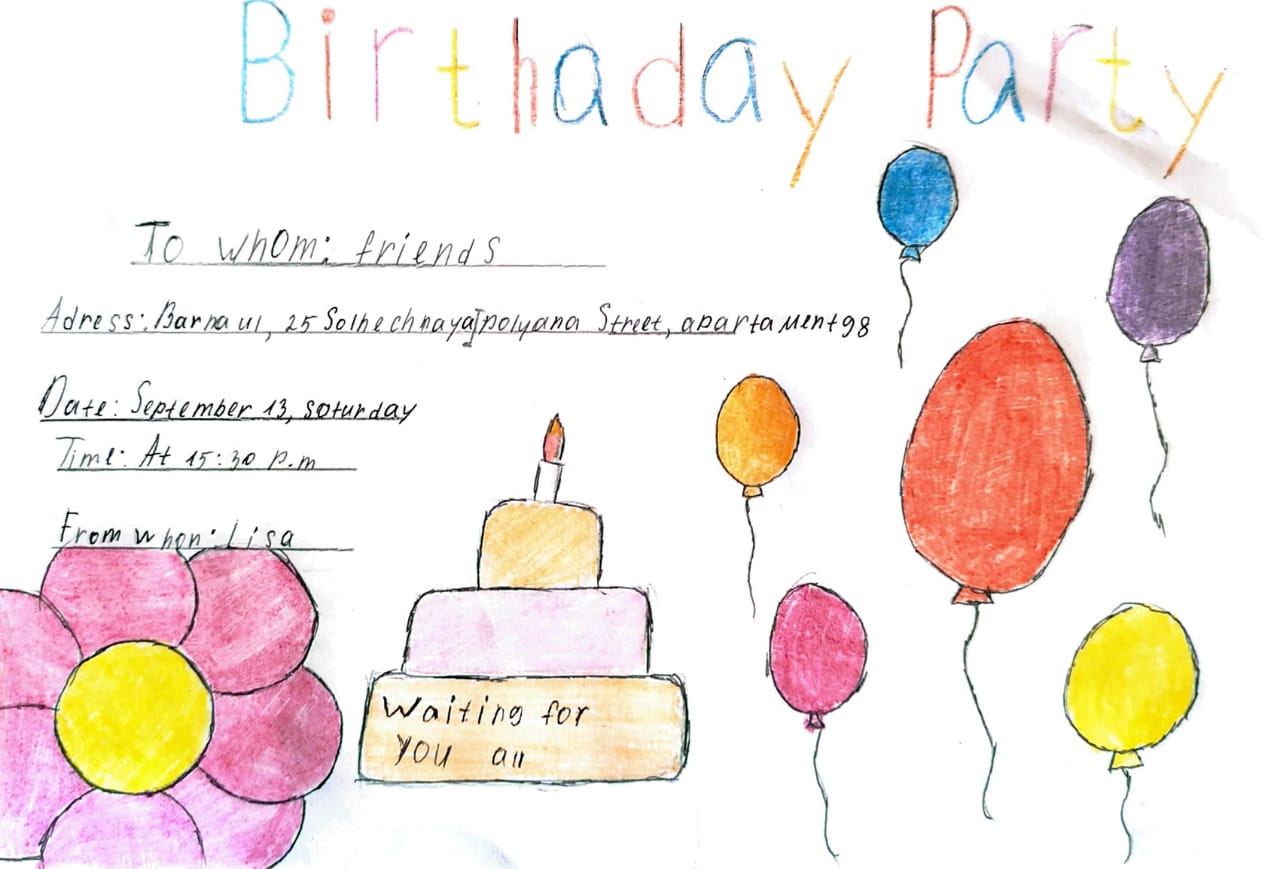 Birthaday Party
To whom: friends
Adress: Barnaul, 25 Solnechnaya polyana Street, apartament 98
Date: September 13, saturday
Time: At 15:30 p.m
From whon: Lisa
Waiting for
you all